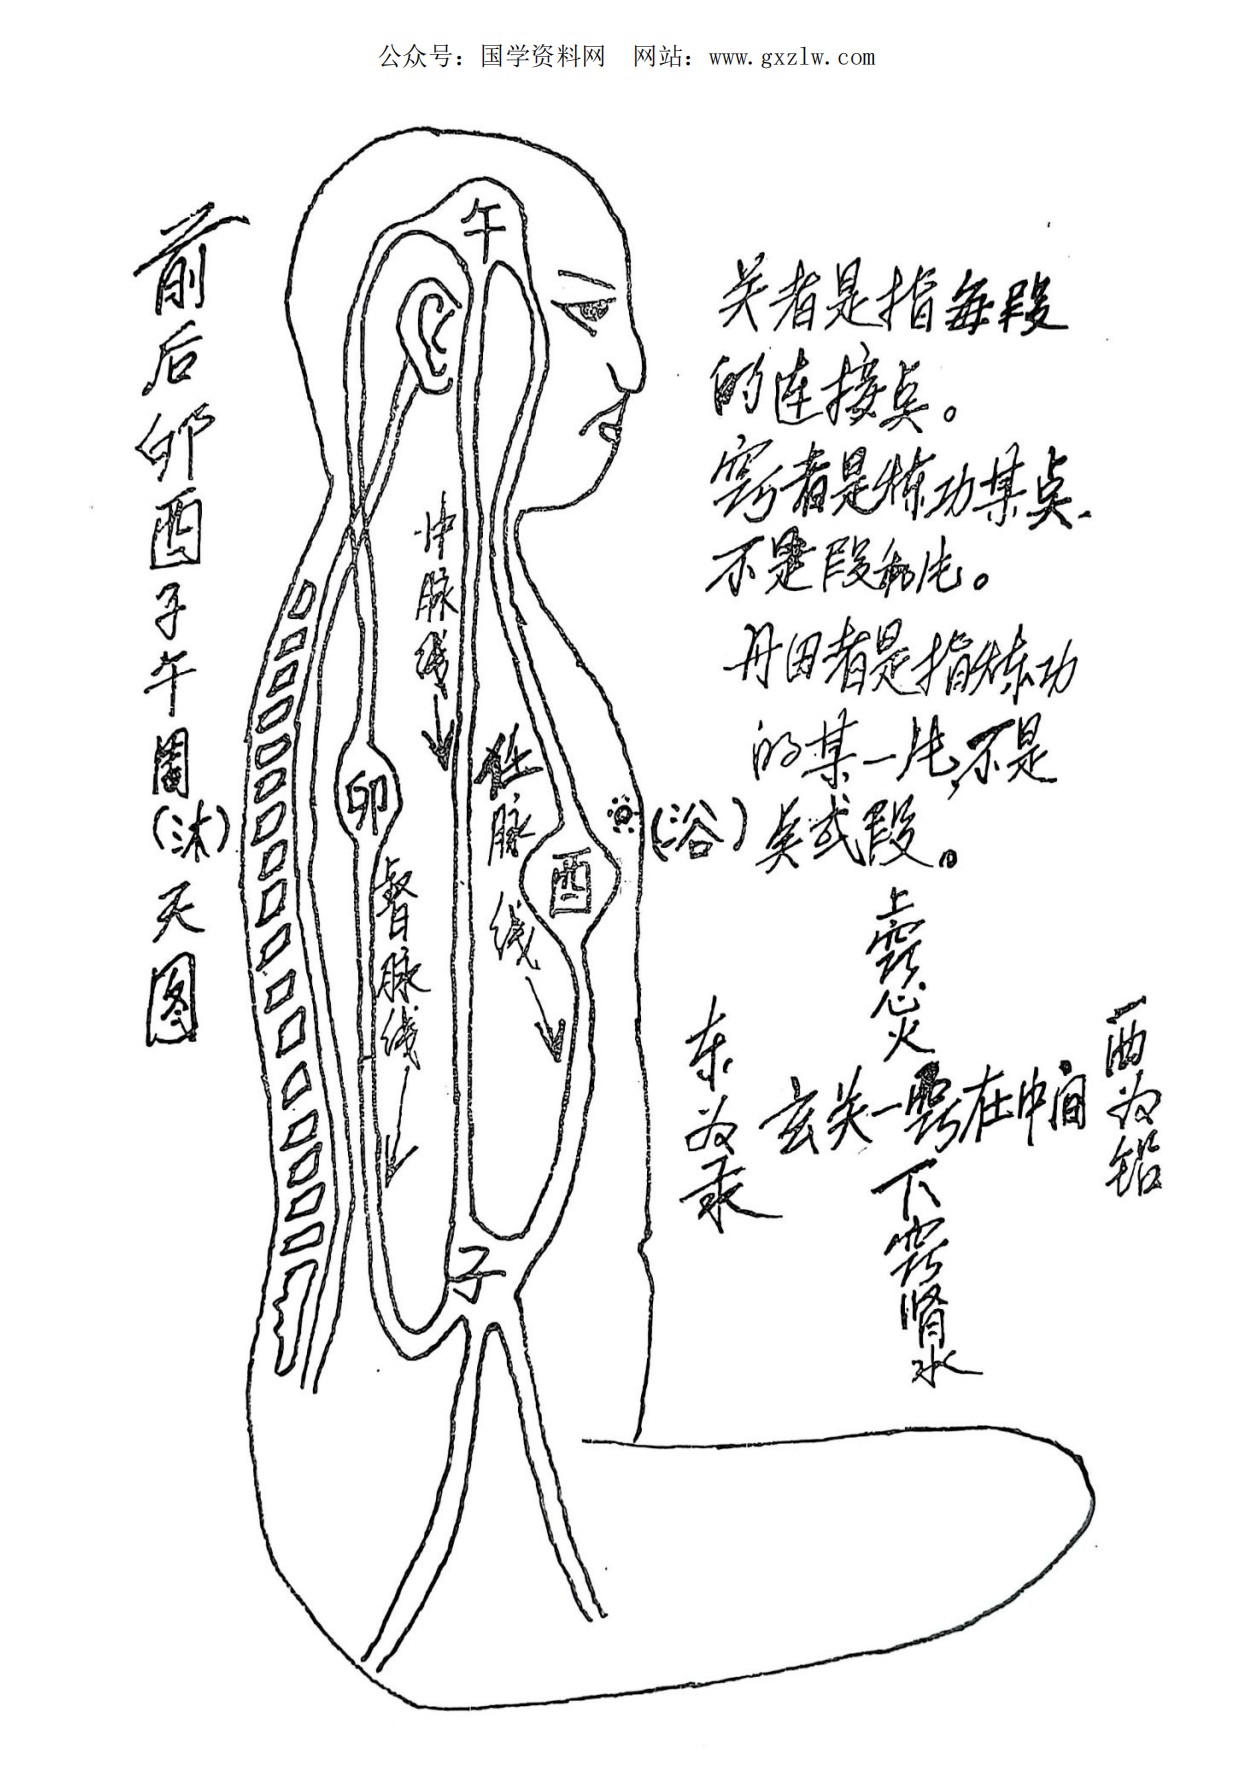 公众号：国学资料网　网站：www.gxzlw.com
前后卯酉子午周天图
（沐）
午
关者是指每段
的连接点。
窍者是炼功某点、
不是段和片。
丹田者是指炼功
的某一片,不是
点或段。
（浴）
冲脉线
任脉线
卯
酉
督脉线
子
上窍心火
东为汞
玄关一窍在中间
西为铅
下窍肾水